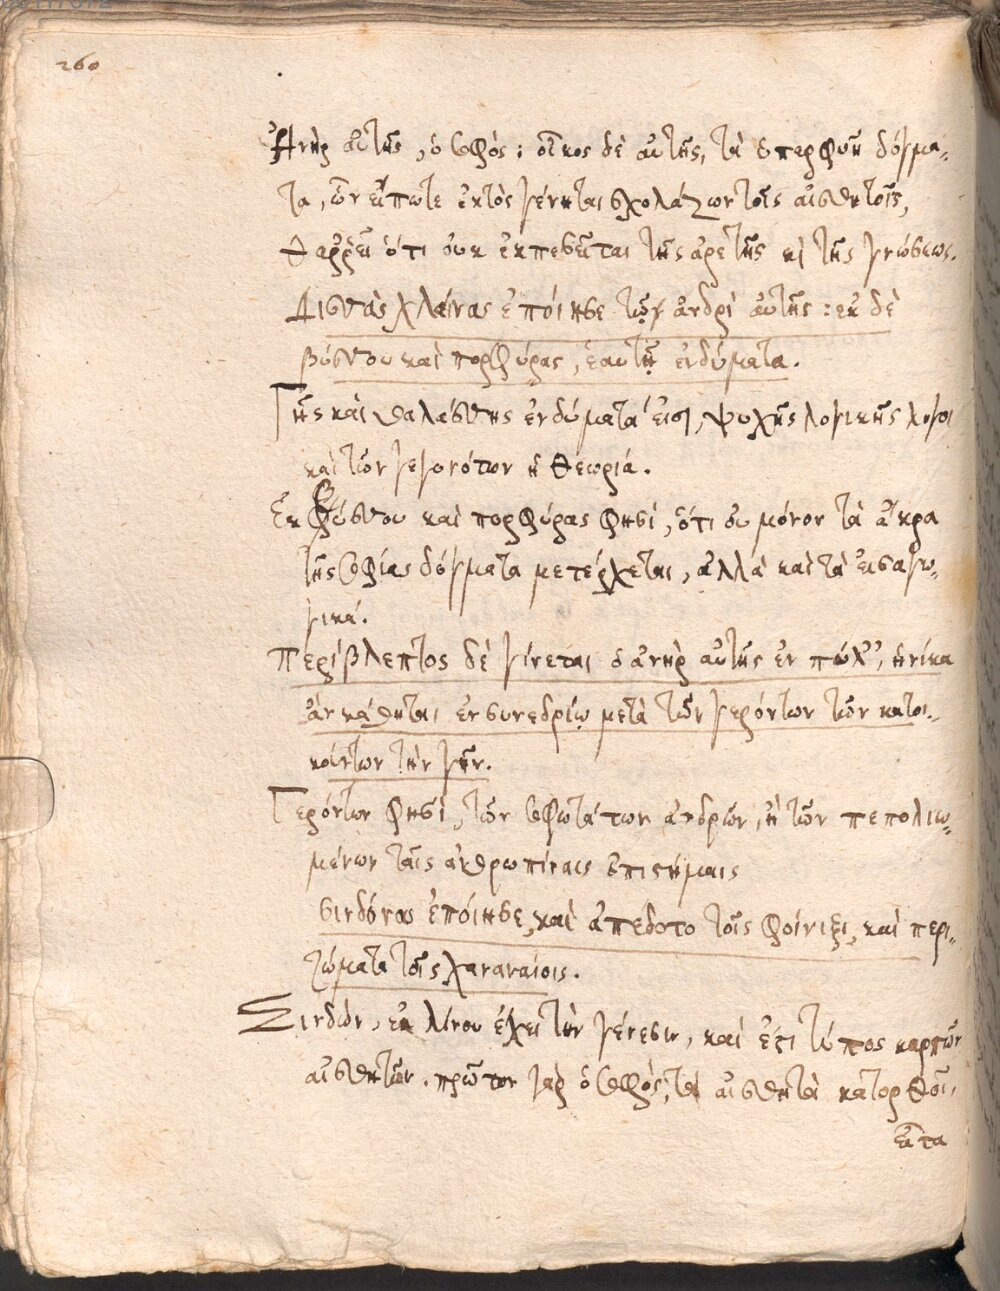 260
Ἀνὴρ αὐτῆς, ὁ σοφός: οἶκος δὲ αὐτῆς, τὰ ὑπερφυῆ δόγμα-
τα, ὧν εἴποτε ἐκτὸς γένηται σχολάζων τοῖς αἰσθητοῖς,
θαῤῥεῖ ὅτι οὐκ ἐκπεσεῖται τῆς ἀρετῆς κὶ τῆς γνώσεως.
Δισσὰς χλαίνας ἐποίησε τῷ ἀνδρὶ αὐτῆς: ἐκ δὲ
βύσσου καὶ πορφύρας, ἑαυτῇ ἐνδύματα.
Γῆς καὶ θαλάσσης ἐνδύματά εἰσι, ψυχῆς λογικῆς λόγοι
καὶ τῶν γεγονότων ἡ θεωρία.
Ἐκ βύσσου καὶ πορφύρας φησὶ, ὅτι οὐ μόνον τὰ ἄκρα
τῆς σοφίας δόγματα μετέρχεται, ἀλλὰ καὶ τὰ εἰσαγω-
γικά.
Περίβλεπτος δὲ γίνεται ὁ ἀνὴρ αὐτῆς ἐν πύλ, ἡνίκα
ἂν κάθηται ἐν συνεδρίῳ μετὰ τῶν γερόντων τῶν κατοι-
κούντων τὴν γῆν.
Γερόντων φησὶ, τῶν σοφωτάτων ἀνδρῶν, ἢ τῶν πεπολιω-
μένων ταῖς ἀνθρωπίναις ἐπιστήμαις
σινδόνας ἐποίησε, καὶ ἀπέδοτο τοῖς φοίνιξι, καὶ περι-
ζώματα τοῖς χαναναίοις.
Σινδὼν, ἐκ λίνου ἔχει τὴν γένεσιν, καὶ ἔστι τύπος καρπῶν
αἰσθητῶν. πρῶτον γὰρ ὁ σοφὸς, τὰ αἰσθητὰ κατορθοῖ.
εἶτα